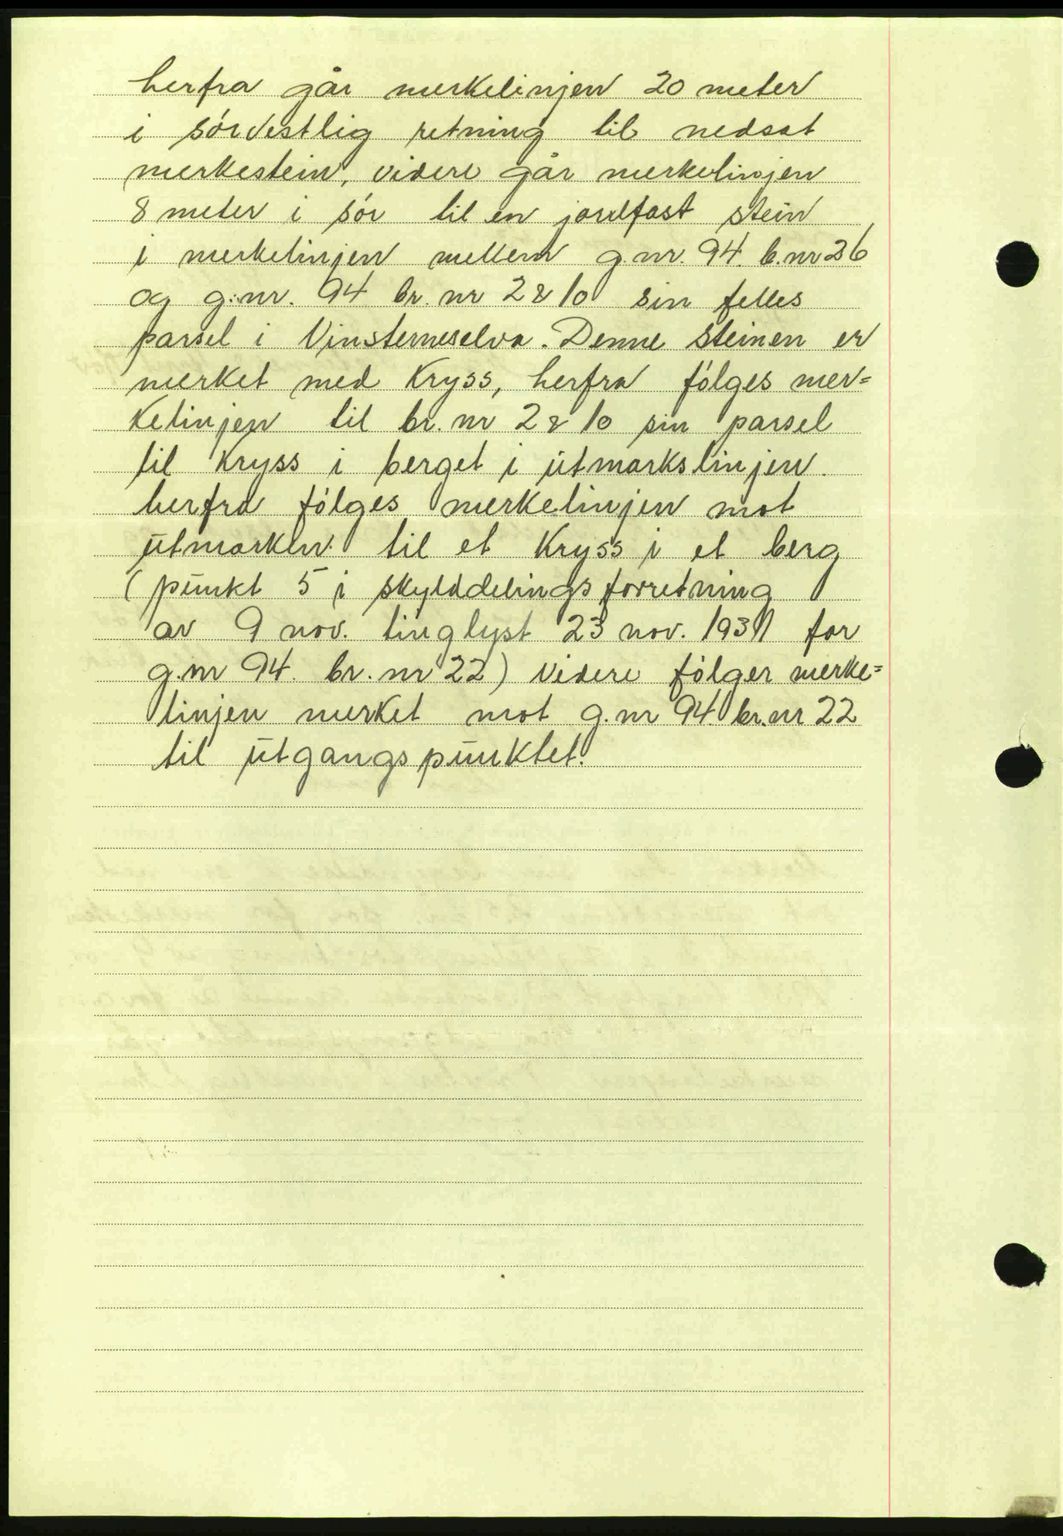 herfra går merkelinjen 20 meter
i sørvestlig retning til nedsat
merkestein, videre går merkelinjen
8 meter i sør til en jordfast stein
i merkelinjen mellem g.nr. 94 b.nr 26
og g.nr. 94 br. nr 2 & 10 sin felles
parsel i Vinsterneselva. Denne steinen er
merket med Kryss, herfra følges mer=
kelinjen til br. nr 2 & 10 sin parsel
til Kryss i berget i utmarkslinjen.
herfra følges merkelinjen mot
utmarken til et Kryss i et berg
(punkt 5 i skylddelingsforretning
av 9 nov. tinglyst 23 nov. 1931 for
g.nr 94. br. nr 22) videre følger merke=
linjen merket mot g.nr 94 br.nr 22
til utgangspunktet.